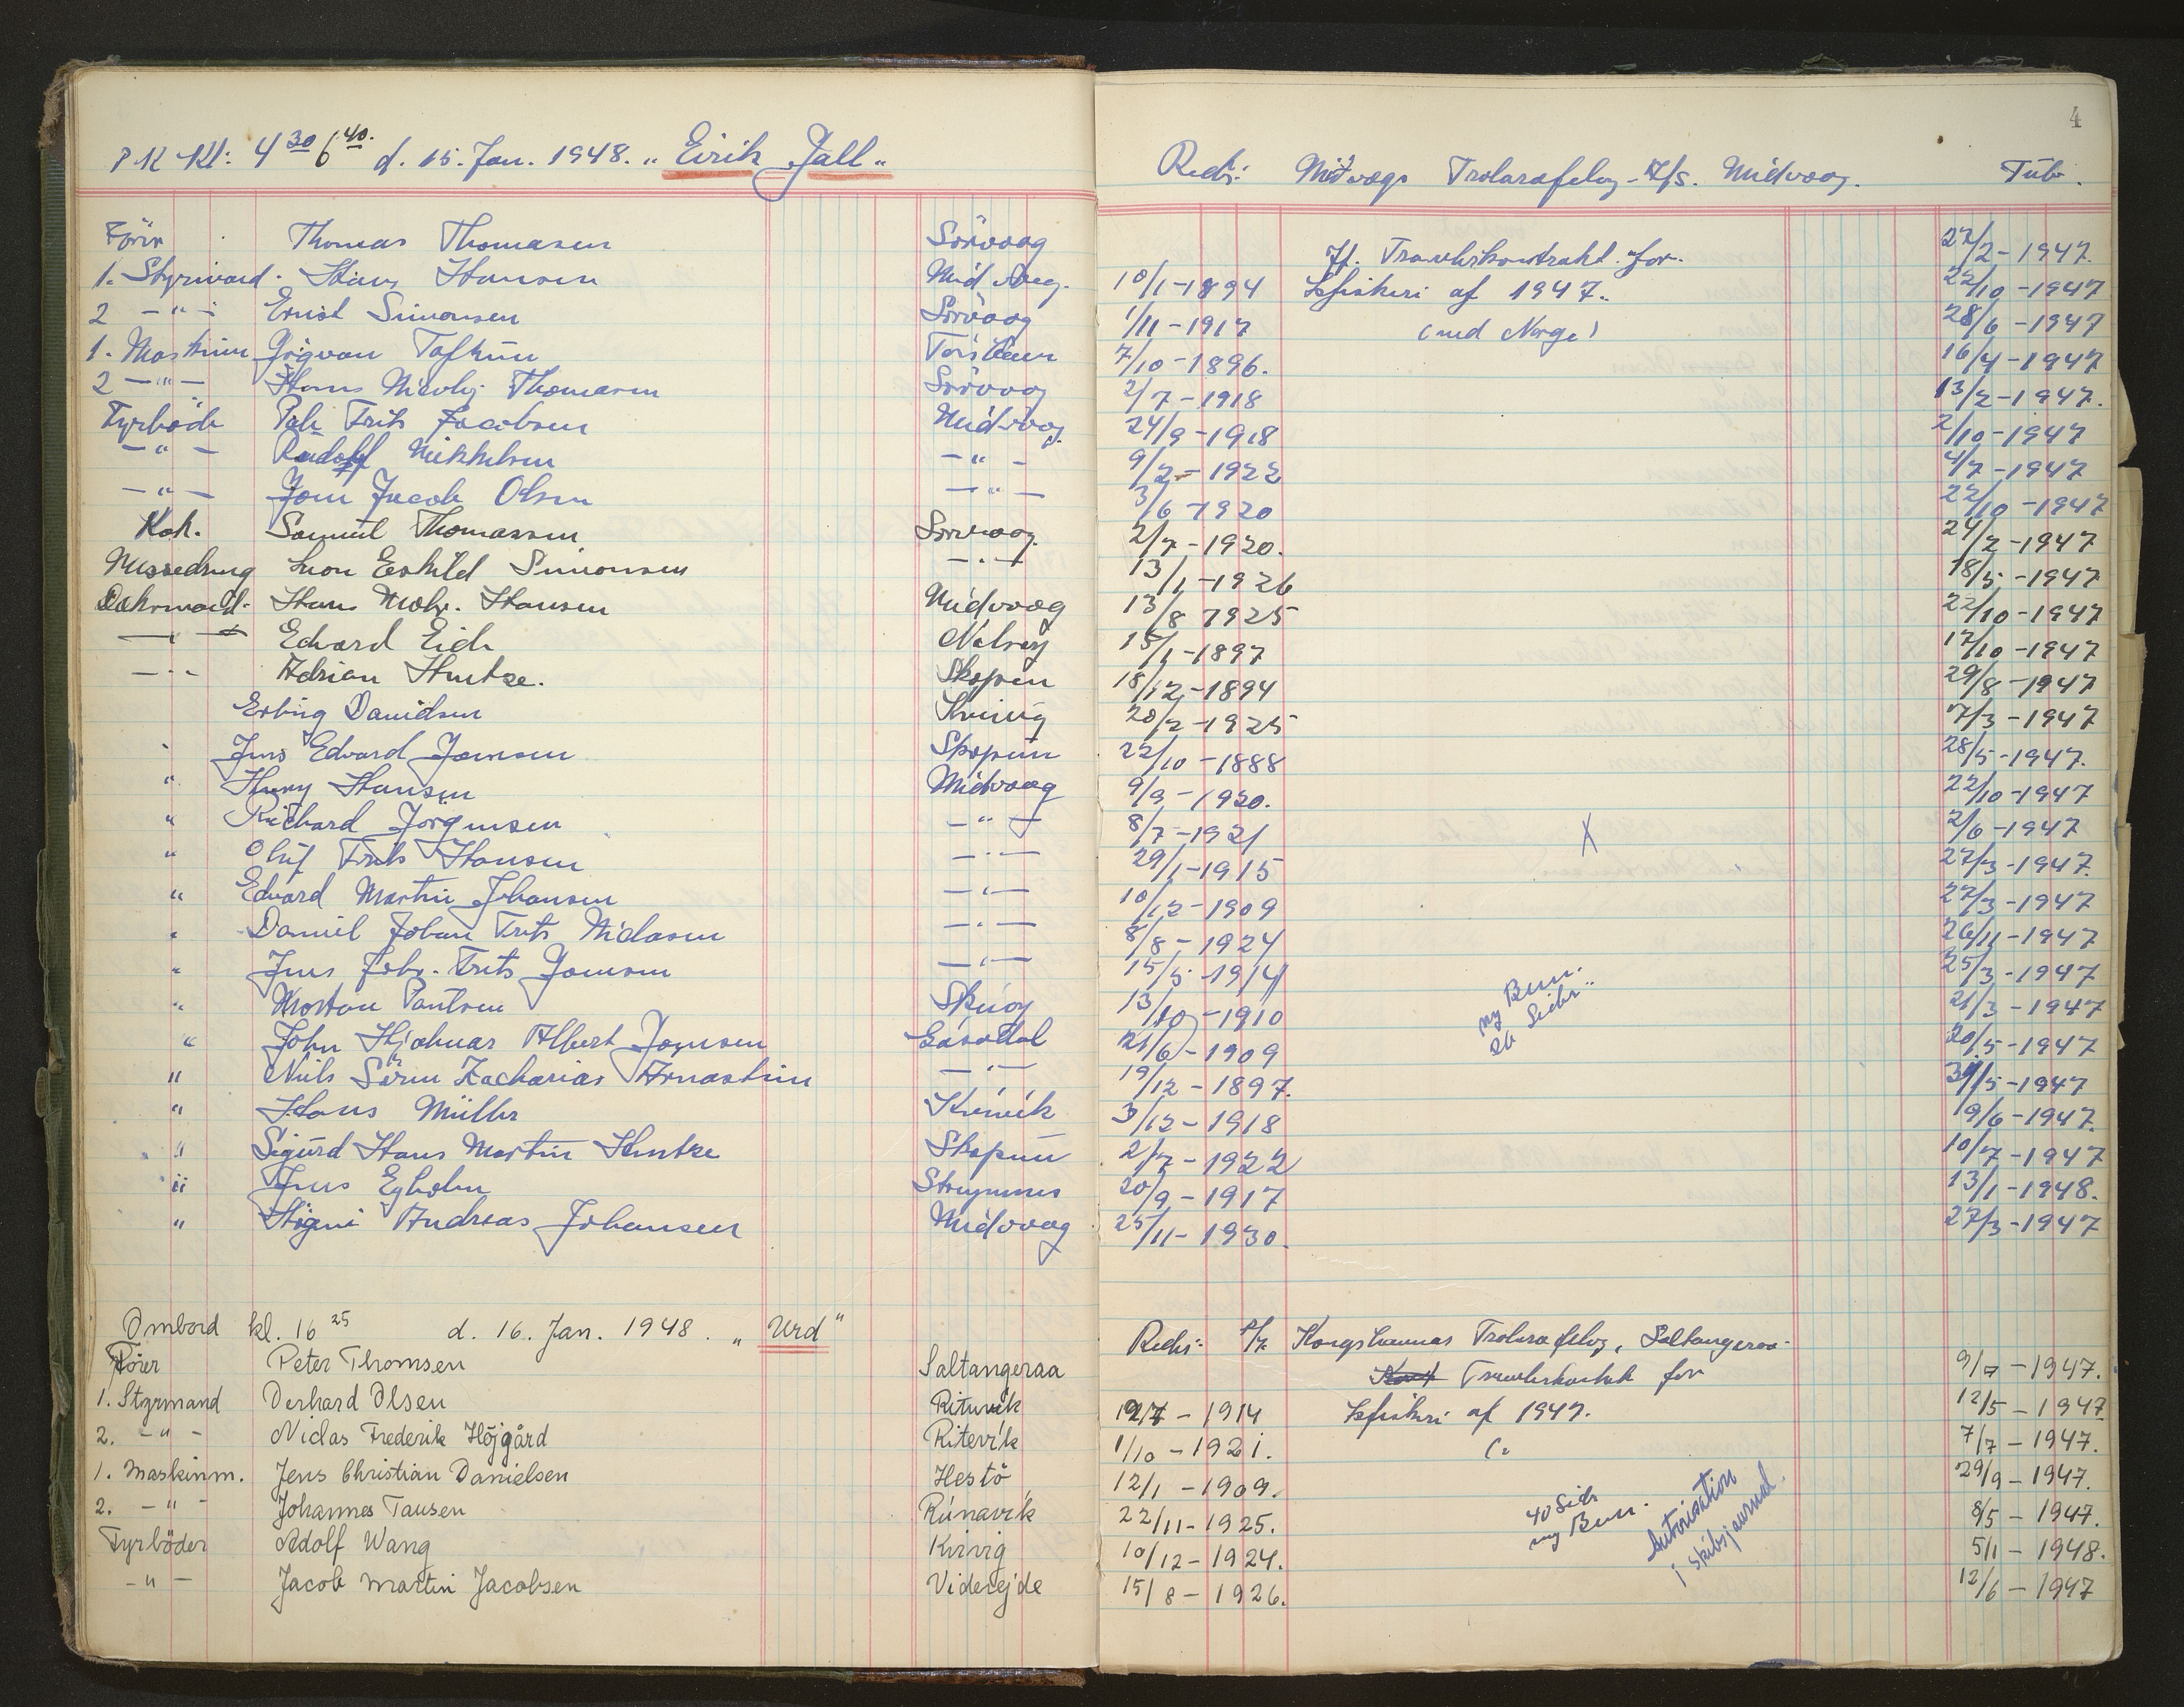 P K Kl: 4 30 6 40. d. 15. Jan. 1948. „ Eirik Jall „
Redr: Midvags Trolarafelag A/s. Midvaag. Tub. 4
Förer Thomas Thomasen Sörvaag 27/2-1947.
1. Styrmand. Hans Hansen Midvaag. 10/1-1894 If. Trawlerkontrakt for 22/10-1947
2 - " - Ernst Simonsen Sörvaag 1/11-1917 Isfiskeri af 1947. 28/6-1947
(med Norge)
1. Maskinm Jógvan 7/10-1896. 16/4-1947
2 - " - Hans Thomasen Sörvoog 2/7-1918 13/2-1947.
Fyrböde Frits Jacobsen Midvaag 24/9-1918 2/10-1947
- " - Rudolf Mikkelsen - " - 9/2-1922 4/7-1947
- " - Joen Jacob Olsen - " - 3/6-1920 22/10-1947
Kok. Samuel Thomassen Sörvaag. 2/7-1920. 24/2-1947
Messedreng Eskild Simonsen - " - 13/1-1926 18/5-1947
Dæksmand. Hans Mohr. Hansen Midvaag 13/8 1925 22/10-1947
- " - Edvard Eide Nolsøy 15/1-1897 17/10-1947
- " - Adrian Hentze. Skopun 18/12-1894 29/8-1947
Erling Davidsen Kvivig 20/2-1925 7/3-1947
" Jens Edvard Joensen Skopun 22/10-1888 28/5-1947.
" Henry Hansen Midvaag 9/9-1920. 22/10-1947
" Richard Jörgensen - " - 8/7-1921 X 2/6-1947
" Oluf Frits Hansen - " - 29/1-1915 27/3-1947.
" Edvard Martin Johansen - " - 10/12-1909 27/3-1947
" Daniel Johan Frits Niclasen - " - 8/8-1924 26/11-1947
" Jens Joh. Frits Joensen - " - 15/5-1914 25/3-1947
" Morten Poulsen Skúoy 13/10-1910 21/3-1947
ny Bem.
26 Sider..
" John Hjalmar Albert Joensen Gásadal 21/6-1909 20/5-1947
" Niels Sören Zacharias Arnastein - " - 19/12-1897. 31/5-1947
" Hans Müller Kvivik 3/12-1918 19/6-1947.
" Sigurd Hans Martin Hentze Skopun 2/7-1922 10/7-1947
" Jens Egholm Strymnes 20/9-1917 13/1-1948.
" Högni Andreas Johansen Midvoog 25/11-1930. 27/3-1947
Ombord kl. 16 25 d. 16. Jan. 1948. „ Urd "
Redr: Kongshavnar Trolarafelag, Saltangeraa.
Förer Peter Thomsen Saltangeraa Trawlerkontrakt for 9/7-1947.
1. Styrmand Derhard Olsen Rituvik 1914 Isfiskeri af 1947. 12/5-1947.
2. - " - Niclas Frederik Höjgård Ritevík 1/10-1921. 7/7-1947.
1. Maskinm. Jens Christian Danielsen Hestö 12/1-1909. 29/9-1947.
2. - " - Johannes Tausen Rúnavík 22/11-1925. 8/5-1947.
40 Sider
ny Bem.
Autorisation
i skibsjournal.
Fyrböder Adolf Wang Kvivig 10/12-1924. 5/1-1948.
- " - Jacob Martin Jacobsen Viderejde 15/8-1926. 12/6-1947